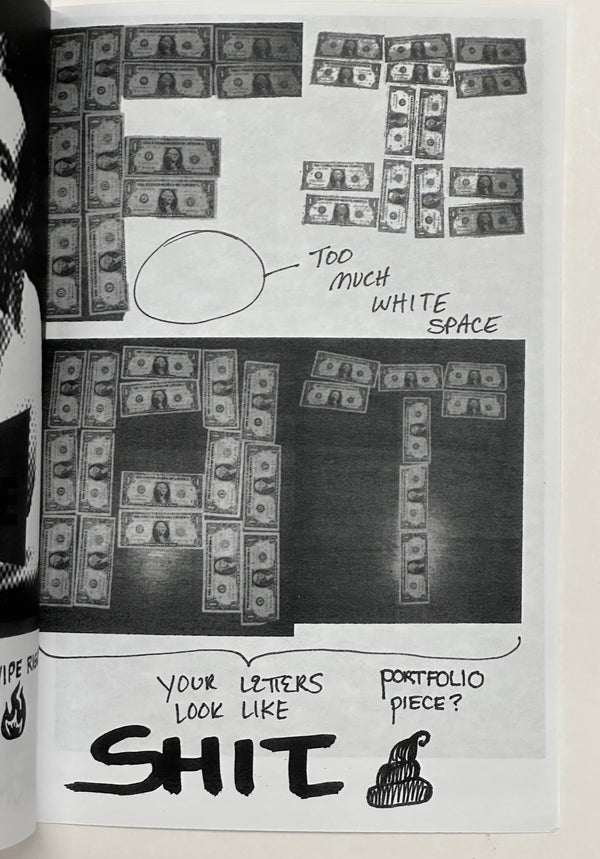 FI
TOO
MUCH
WHITE
SPACE
AT
YOUR LETTERS
LOOK LIKE
SHIT
PORTFOLIO
PIECE?